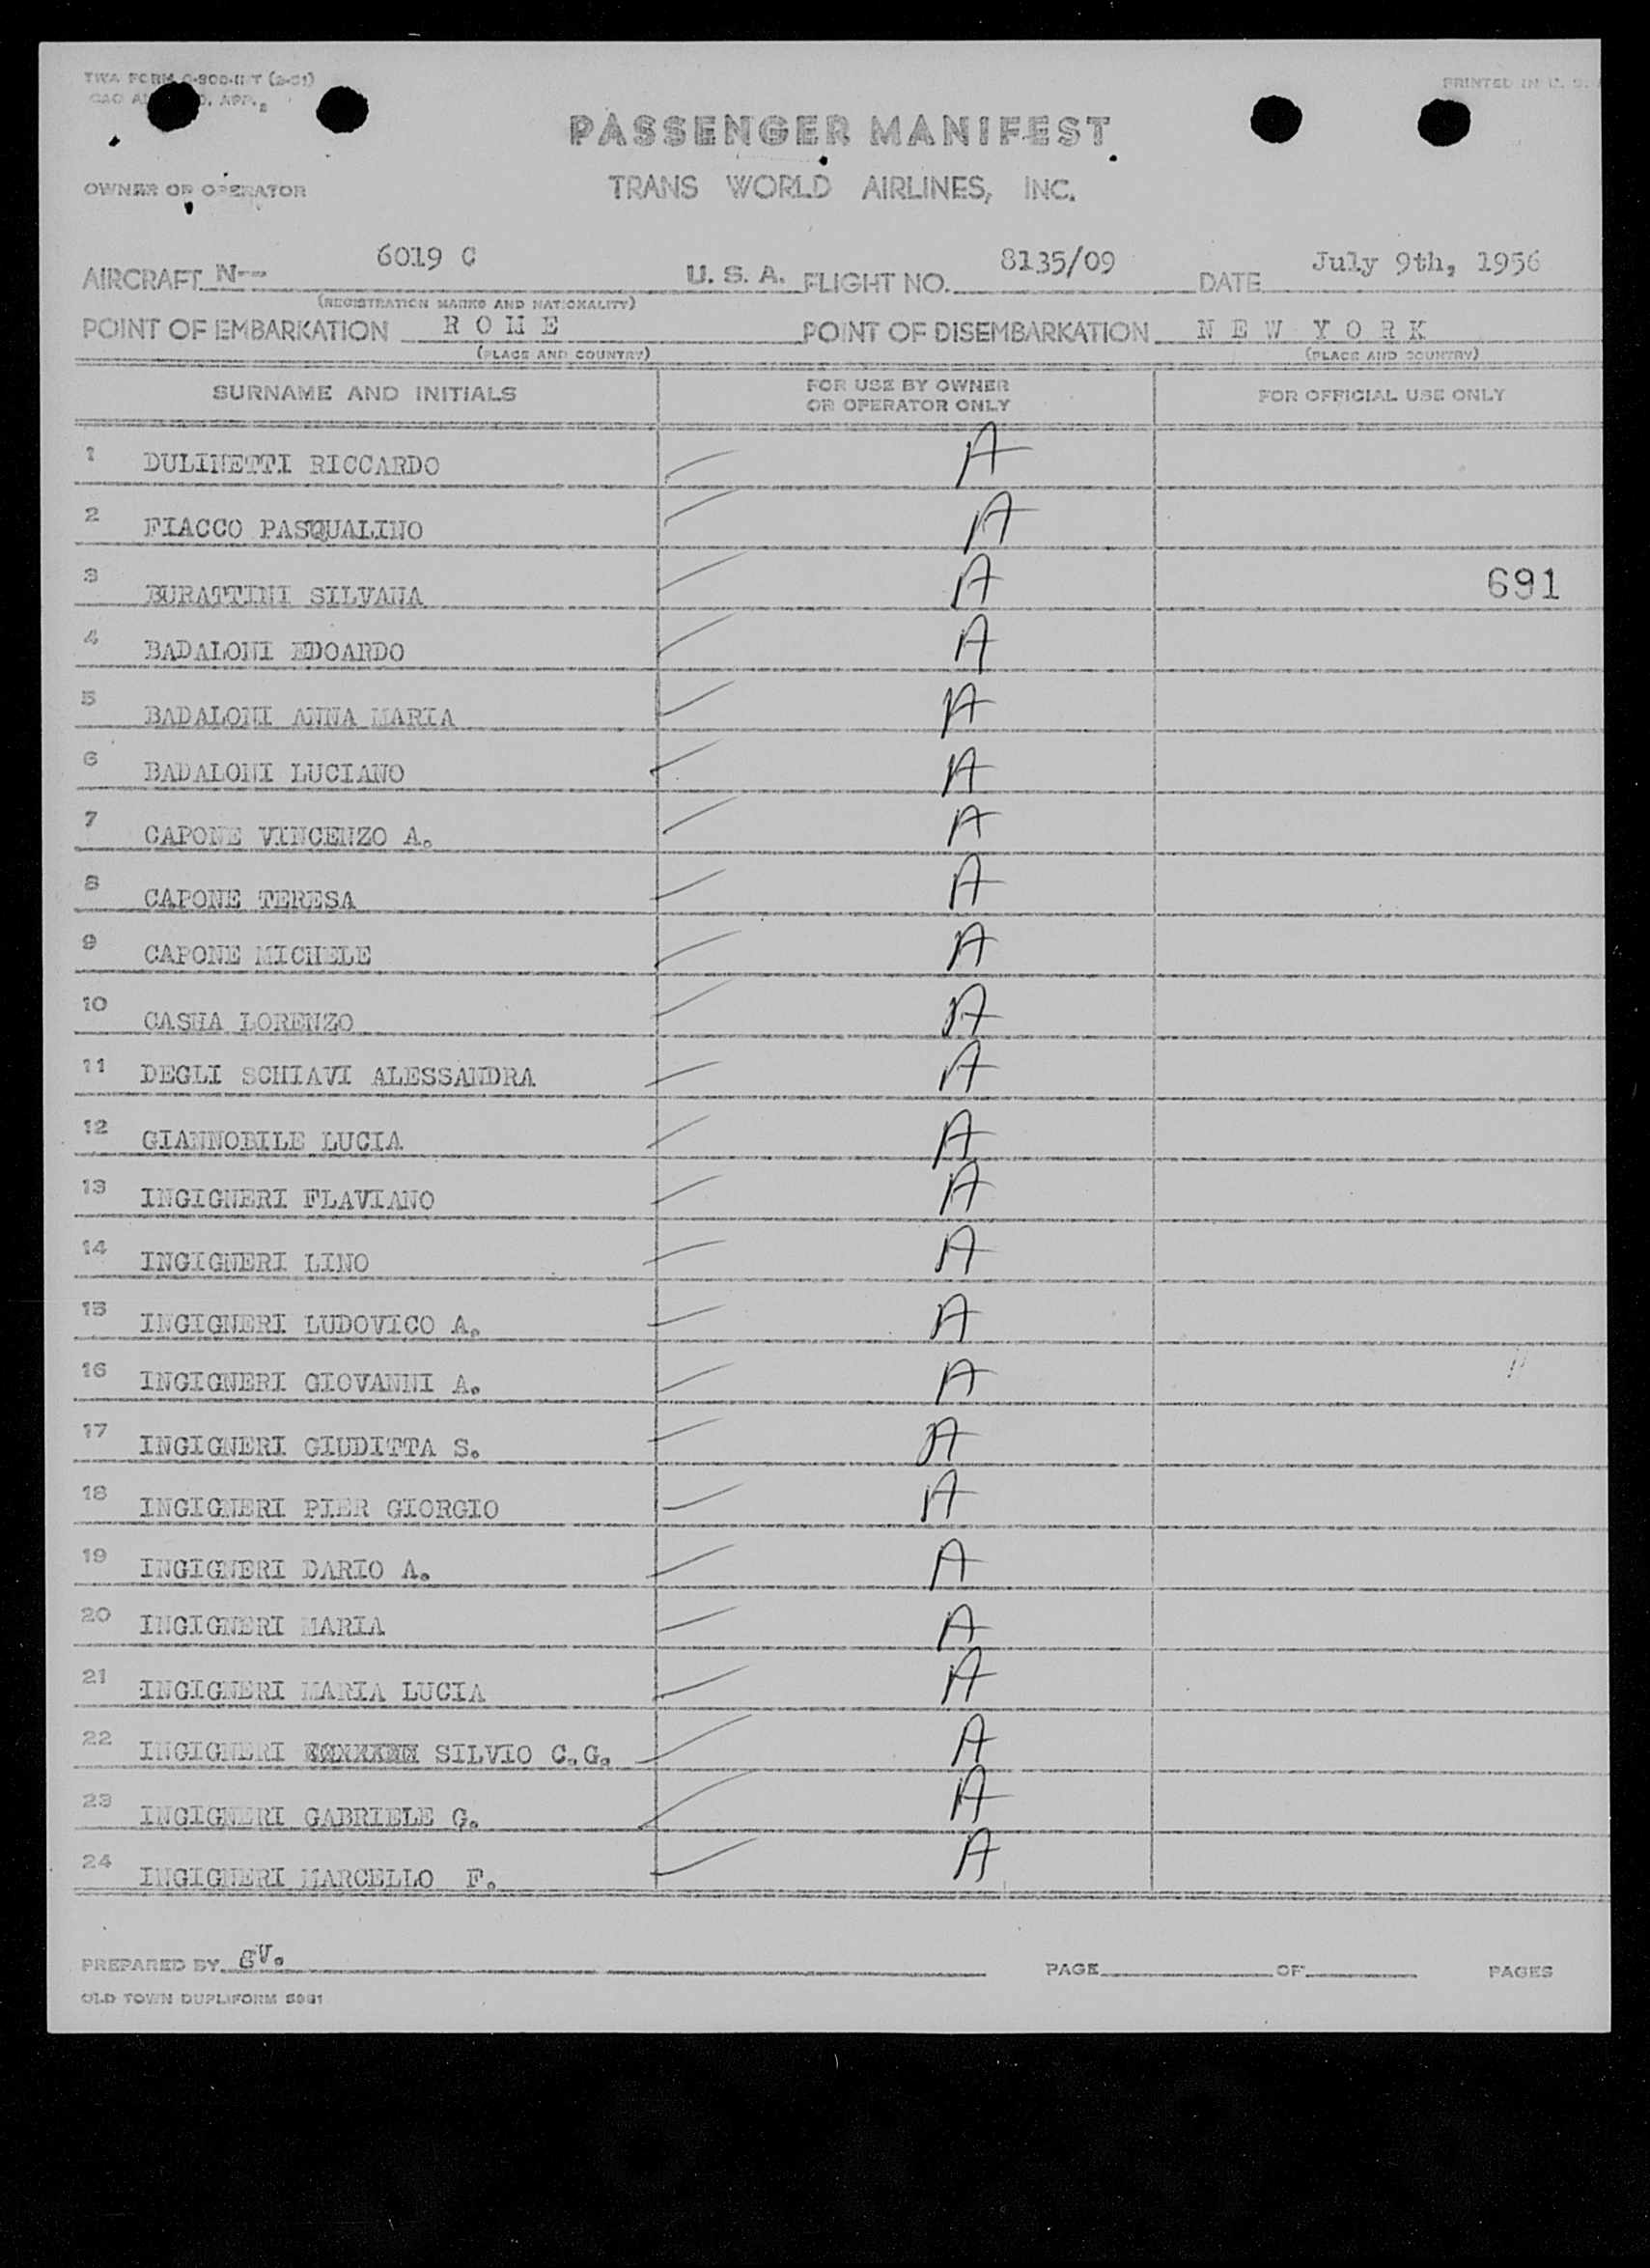 TWA FORM
PRINTED IN U. S.
PASSENGER MANIFEST
OWNER OR OPERATOR
TRANS WORLD AIRLINES, INC.
AIRCRAFT N-- 6019 C U. S. A. FLIGHT NO. 8135/09 DATE July 9th, 1956
(REGISTRATION MARKS AND NATIONALITY)
POINT OF EMBARKATION R O M E POINT OF DISEMBARKATION N E W Y O R K
(PLACE AND COUNTRY) (PLACE AND COUNTRY)
SURNAME AND INITIALS FOR USE BY OWNER OR OPERATOR ONLY FOR OFFICIAL USE ONLY
1 DULINETTI RICCARDO A
2 FIACCO PASQUALINO A
3 BURATTINI SILVANA A 691
4 BADALONI EDOARDO A
5 BADALONI ANNA MARIA A
6 BADALONI LUCIANO A
7 CAPONE VINCENZO A. A
8 CAPONE TERESA A
9 CAPONE MICHELE A
10 LORENZO A
11 DEGLI SCHIAVI ALESSANDRA A
12 GIANNOBILE LUCIA A
13 INGIGNERI FLAVIANO A
14 INGIGNERI LINO A
15 INGIGNERI LUDOVICO A. A
16 INGIGNERI GIOVANNI A. A
17 INGIGNERI GIUDITTA S. A
18 INGIGNERI PIER GIORGIO A
19 INGIGNERI DARIO A. A
20 INGIGNERI MARIA A
21 INGIGNERI MARIA LUCIA A
22 INGIGNERI SILVIO C.G. A
23 INGIGNERI GABRIELE G. A
24 INGIGNERI MARCELLO F. A
PREPARED BY gV. PAGE OF PAGES
OLD TOWN DUPLIFORM